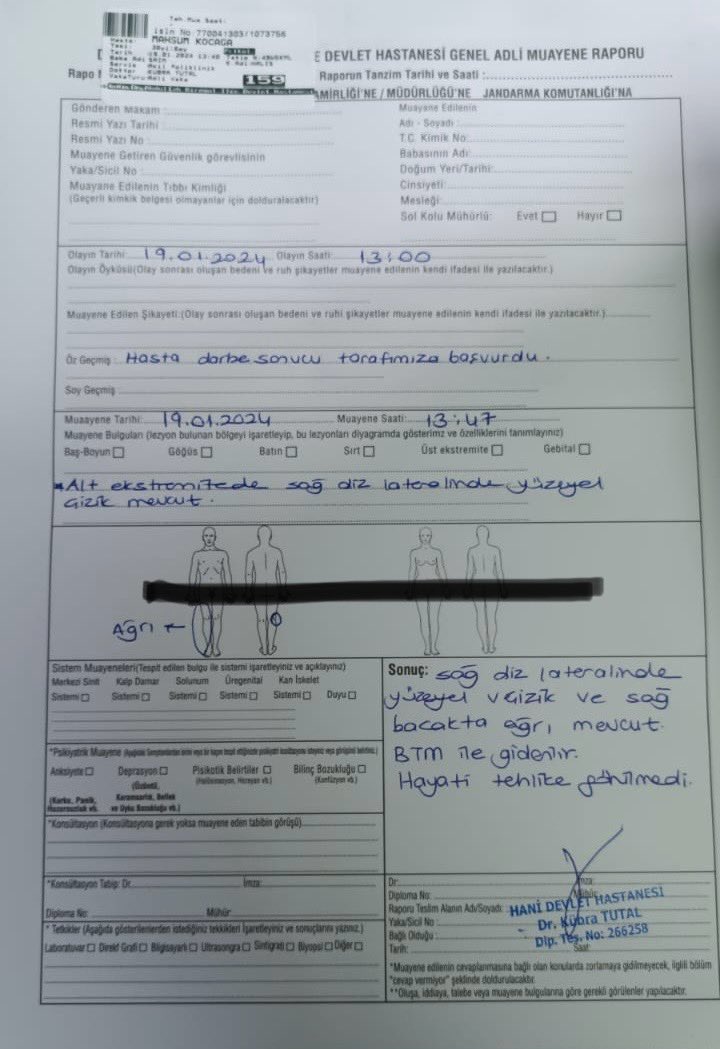 Teh.Mua Saati:
isin No:770041303/1073756
MAHSUM KOCAGA
159
E DEVLET HASTANESİ GENEL ADLİ MUAYENE RAPORU
Rapo
Raporun Tanzim Tarihi ve Saati :
AMİRLİĞİ'NE / MÜDÜRLÜĞÜ'NE JANDARMA KOMUTANLIĞI'NA
Gönderen Makam :
Resmi Yazı Tarihi :
Resmi Yazı No :
Muayene Getiren Güvenlik görevlisinin
Yaka/Sicil No :
Muayane Edilenin Tıbbı Kimliği
(Geçerli kimkik belgesi olmayanlar için dolduralacaktır)
Muayane Edilenin
Adı - Soyadı :
T.C. Kimik No:
Babasının Adı:
Doğum Yeri/Tarihi:
Cinsiyeti:
Mesleği:
Sol Kolu Mühürlü: Evet Hayır
Olayın Tarihi: 19.01.2024 Olayın Saati: 13:00
Olayın Öyküsü(Olay sonrası oluşan bedeni ve ruh şikayetler muayene edilenin kendi ifadesi ile yazılacaktır.)
Muayene Edilen Şikayeti:(Olay sonrası oluşan bedeni ve ruhi şikayetler muayene edilenin kendi ifadesi ile yazılacaktır.)
Öz Geçmiş : Hasta darbe sonucu tarafımıza başvurdu.
Soy Geçmiş
Muaayene Tarihi: 19.01.2024 Muayene Saati: 13:47
Muayene Bulguları (lezyon bulunan bölgeyi işaretleyip, bu lezyonları diyagramda gösterimz ve özelliklerini tanımlayınız)
Baş-Boyun Göğüs Batın Sırt Üst ekstremite Gebital
*Alt ekstremitede sağ diz lateralinde yüzeyel
çizik mevcut.
Ağrı ←
Sistem Muayeneleri(Tespit edilen bulgu ile sistemi işaretleyiniz ve açıklayınız)
Merkezi Sinit Kalp Damar Solunum Üregenital Kan İskelet
Sistemi Sistemi Sistemi Sistemi Sistemi Duyu
*Psikiyatrik Muayene
Anksiyete Depresyon Psikotik Belirtiler Bilinç Bozukluğu
(Korku, Panik,
Huzursuzluk vb.
Karamsarlık, Bellek
ve Uyku Bozukluğu vb.)
*Konsültasyon (Konsültasyona gerek yoksa muayene eden tabibin görüşü)
*Konsültasyon Tabip: Dr. İmza:
Diploma No: Mühür
* Tetkikler (Aşağıda gösterilenlerden istediğiniz tekkikleri işaretleyiniz ve sonuçlarını yazınız.)
Laboratuvar Direkt Grafi Bilgisayarlı Ultrasongra Sintigrafi Biyopsi Diğer
Sonuç: sağ diz lateralinde
yüzeyel çizik ve sağ
bacakta ağrı mevcut.
BTM ile giderilir.
Hayati tehlike görülmedi.
Dr: İmza:
Diploma No: Mühür
Raporu Teslim Alanın Adı/Soyadı:
Yaka/Sicil No :
Bağlı Olduğu :
Tarih: Saat:
HANİ DEVLET HASTANESİ
Dr. Kübra TUTAL
Dip. Tes. No: 266258
*Muayene edilenin cevaplanmasına bağlı olan konularda zorlamaya gidilmeyecek, ilgili bölüm
"cevap vermiyor" şeklinde doldurulacaktır.
**Oluşa, iddiaya, talebe veya muayene bulgularına göre gerekli görülenler yapılacaktır.